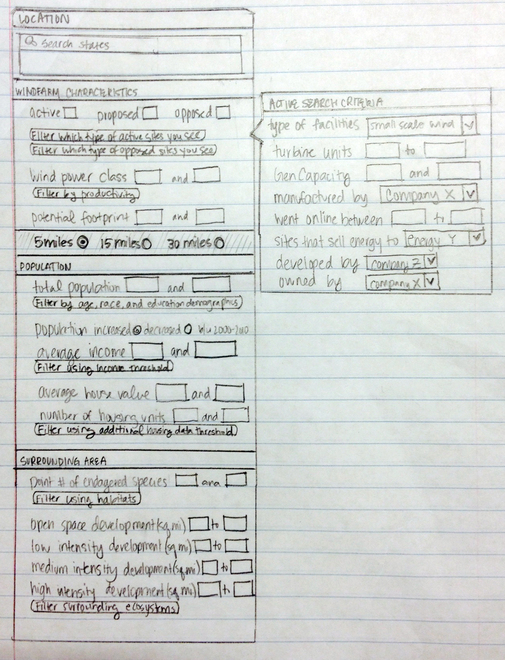 LOCATION
Search states
WINDFARM CHARACTERISTICS
active proposed opposed
Filter which type of active sites you see
Filter which type of opposed sites you see
wind power class and
Filter by productivity
potential footprint and
5 miles 15 miles 30 miles
POPULATION
total population and
Filter by age, race, and education demographics
population increased decreased b/w 2000-2010
average income and
Filter using income threshold
average house value and
number of housing units and
Filter using additional housing data threshold
SURROUNDING AREA
point # of endagered species and
Filter using habitats
open space development (sq mi) to
low intensity development (sq mi) to
medium intensity development (sq mi) to
high intensity development (sq mi) to
Filter surrounding ecosystems
ACTIVE SEARCH CRITERIA
type of facilities small scale wind
turbine units to
Gen Capacity and
manufactured by Company X
went online between to
sites that sell energy to energy Y
developed by company Z
owned by company X